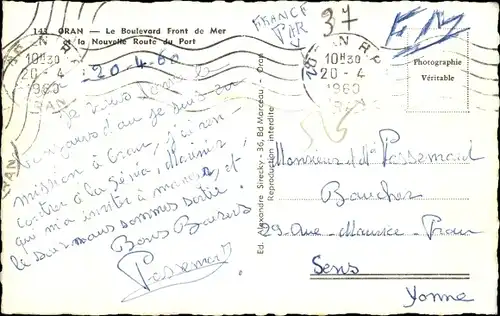 143 ORAN - Le Boulevard Front de Mer
la Nouvelle Route du Port
ORAN R P
10H30
20-4
1960
ORAN
20-4-60
Je vous
d'au je suis en
mission à Oran, j'ai ren-
contré à la Sénia, Maurice,
qui m'a invité à manger, et
le soir nous sommes sortis.
Bons Baisers
Passemard
Ed. Alexandre Sirecky - 36, Bd Marceau - Oran
Reproduction interdite
FRANCE
PAR
37
FM
ORAN R P
10H30
20-4
1960
Photographie
Véritable
Monsieur et Mme Passemard
Boucher
29 Rue Maurice
Sens
Yonne